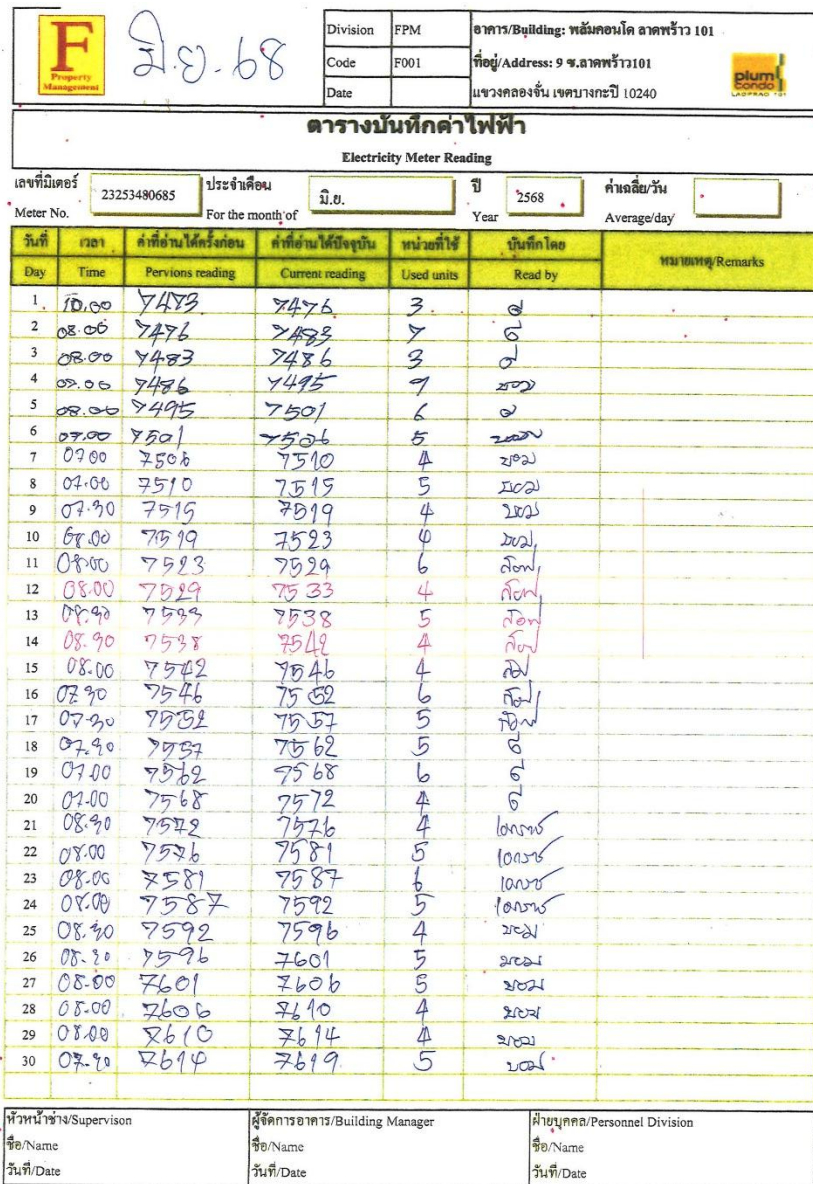 F
Property
Management
มิ.ย. 68
Division FPM อาคาร/Building: พลัมคอนโด ลาดพร้าว 101
Code F001 ที่อยู่/Address: 9 ซ.ลาดพร้าว101
Date แขวงคลองจั่น เขตบางกะปิ 10240
plum
condo
LADPRAO 101
ตารางบันทึกค่าไฟฟ้า
Electricity Meter Reading
เลขที่มิเตอร์ 23253480685 ประจำเดือน มิ.ย. ปี 2568 ค่าเฉลี่ย/วัน
Meter No. For the month of Year Average/day
วันที่ เวลา ค่าที่อ่านได้ครั้งก่อน ค่าที่อ่านได้ปัจจุบัน หน่วยที่ใช้ บันทึกโดย หมายเหตุ/Remarks
Day Time Pervions reading Current reading Used units Read by
1 10.00 7473 7476 3
2 08.00 7476 7483 7
3 08.00 7483 7486 3
4 07.00 7486 7495 9 บอม
5 08.00 7495 7501 6
6 07.00 7501 7506 5 บอม
7 0700 7506 7510 4 บอม
8 07.00 7510 7515 5 บอม
9 07.30 7515 7519 4 บอม
10 08.00 7519 7523 4 บอม
11 08.00 7523 7529 6
12 08.00 7529 7533 4
13 08.30 7533 7538 5
14 08.30 7538 7542 4
15 08.00 7542 7546 4
16 07.30 7546 7552 6
17 07.30 7552 7557 5
18 07.30 7557 7562 5
19 07.00 7562 7568 6
20 07.00 7568 7572 4
21 08.30 7572 7576 4 เอกราช
22 08.00 7576 7581 5 เอกราช
23 08.00 7581 7587 6 เอกราช
24 08.00 7587 7592 5 เอกราช
25 08.30 7592 7596 4 บอม
26 08.30 7596 7601 5 บอม
27 08.00 7601 7606 5 บอม
28 08.00 7606 7610 4 บอม
29 08.00 7610 7614 4 บอม
30 07.30 7614 7619 5 บอม
หัวหน้าช่าง/Supervison ผู้จัดการอาคาร/Building Manager ฝ่ายบุคคล/Personnel Division
ชื่อ/Name ชื่อ/Name ชื่อ/Name
วันที่/Date วันที่/Date วันที่/Date